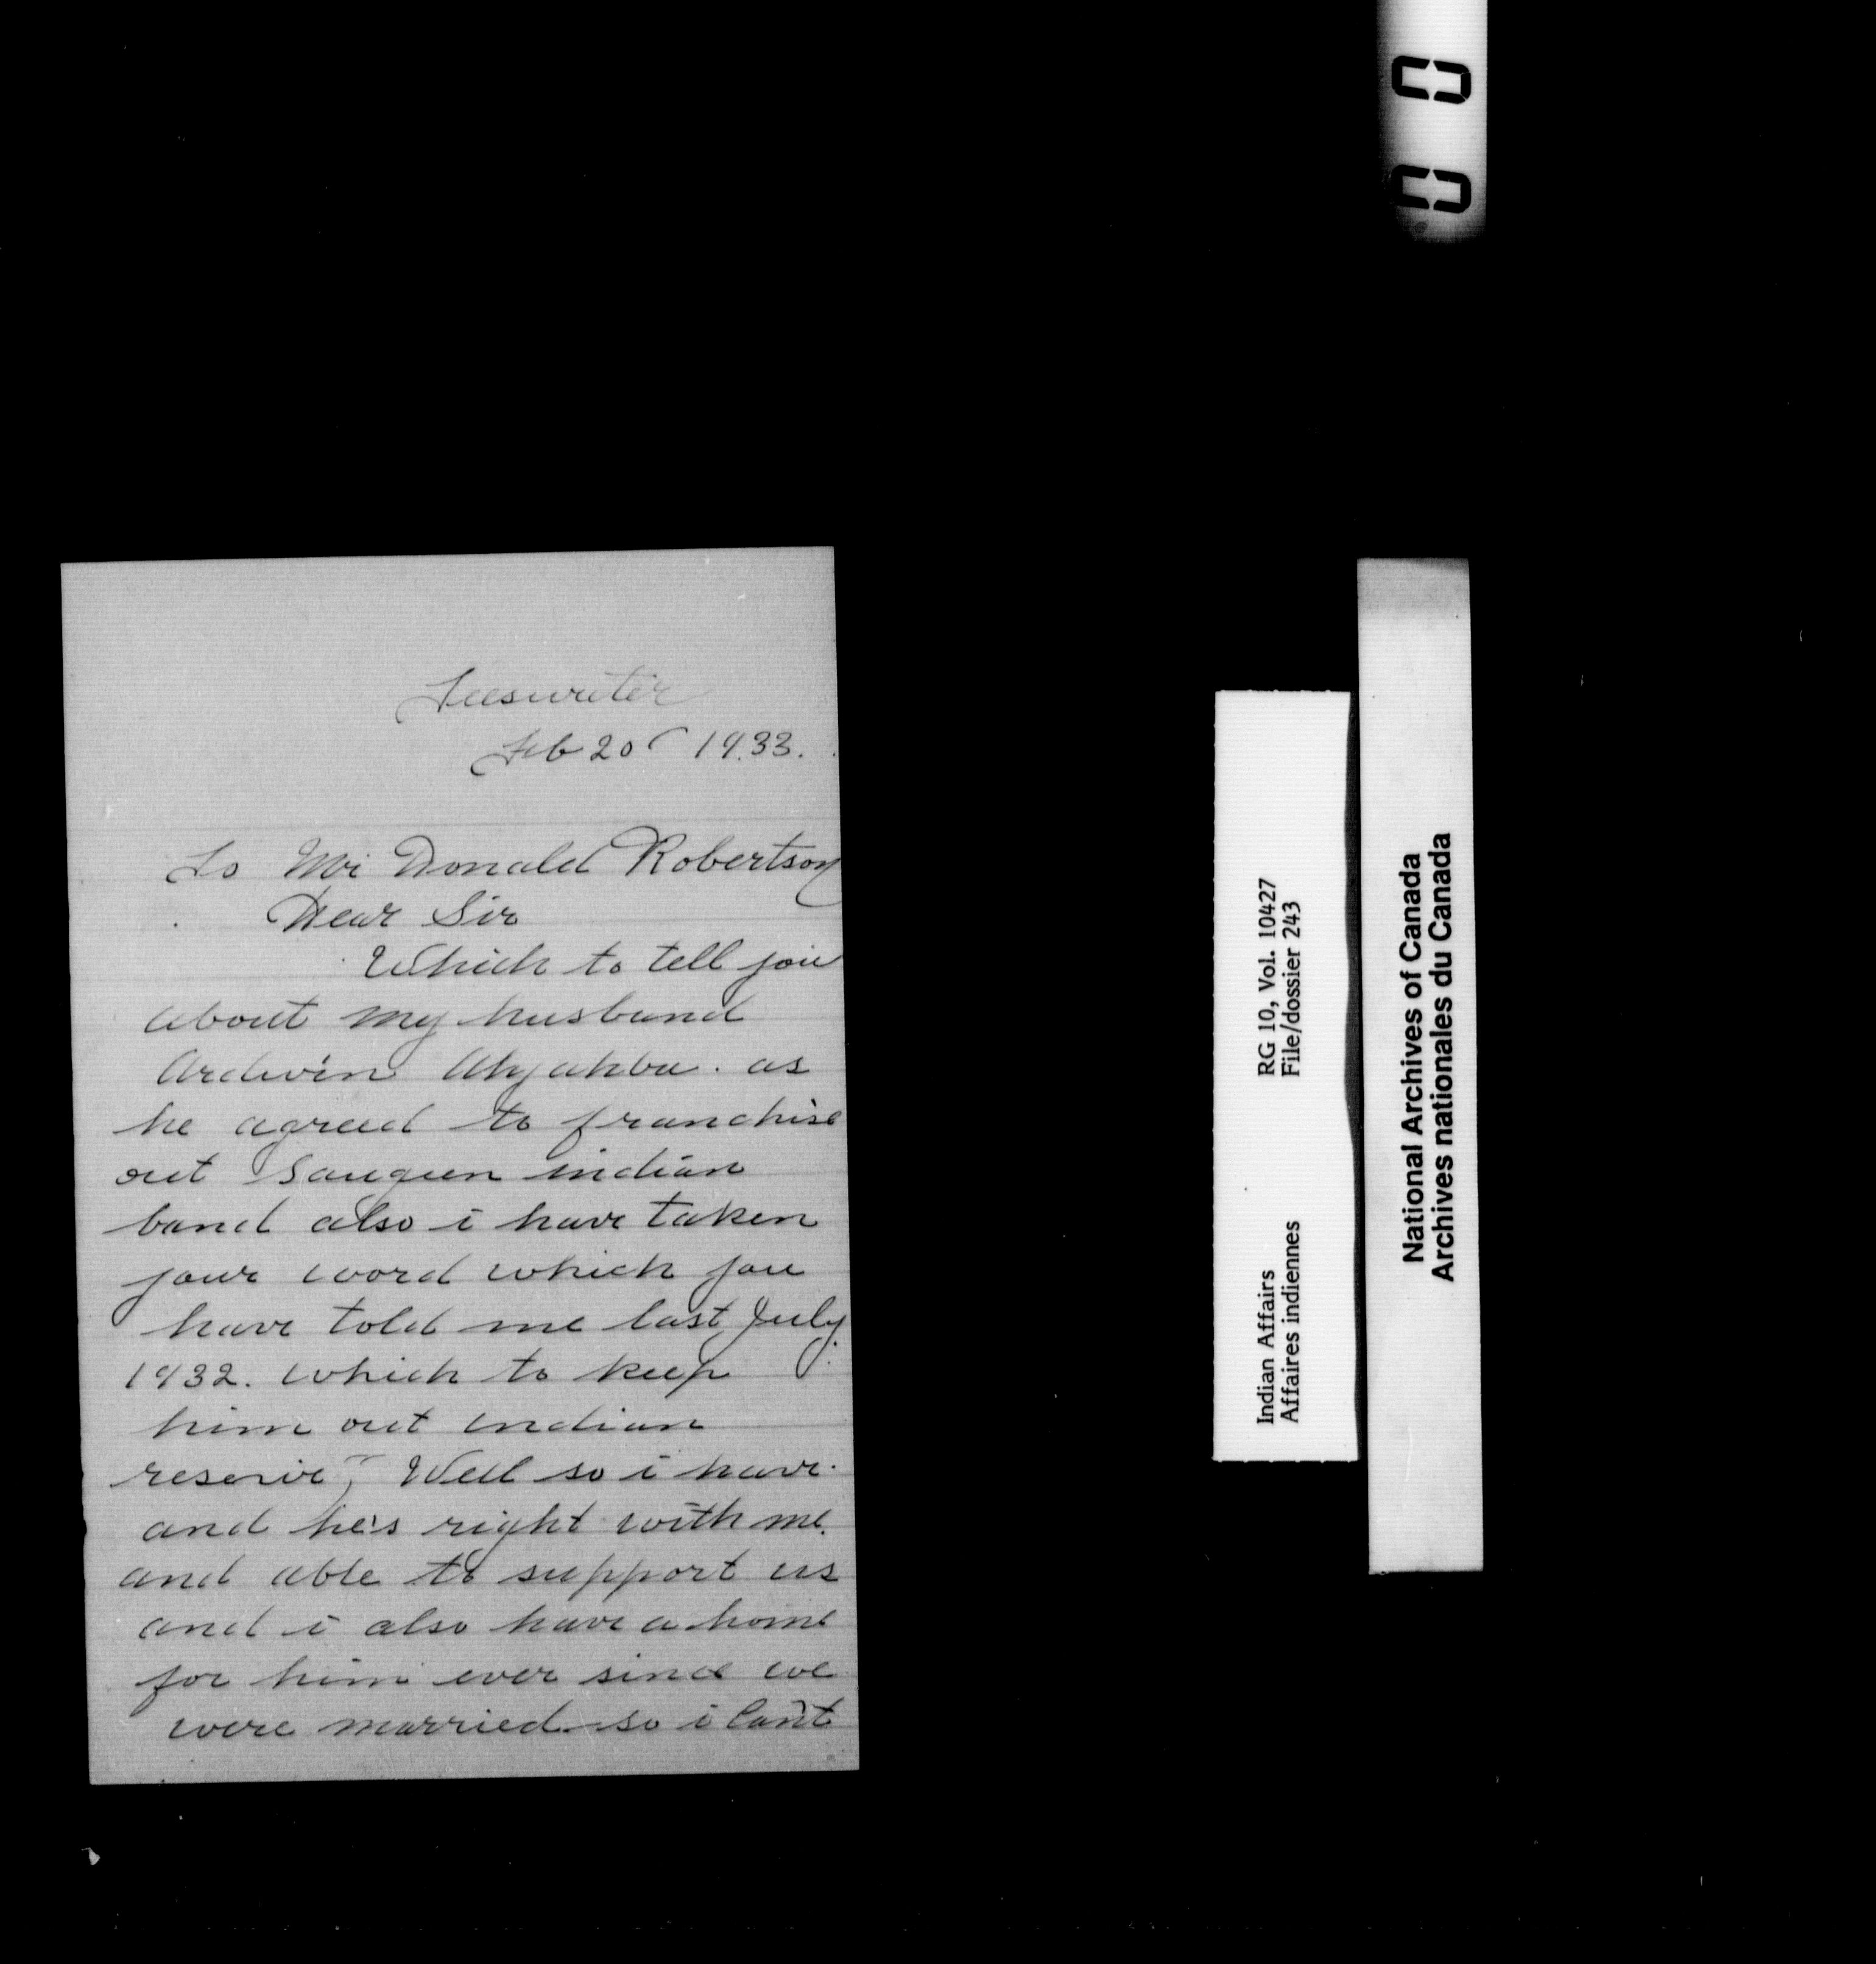 Teeswater
Feb 20 1933.
To Mr Donald Robertson
Dear Sir
Which to tell you
about my husband
as
he agreed to franchise
out Saugeen indian
band also i have taken
your word which you
have told me last July
1932. which to keep
him out indian
reserve, Well so i have.
and he's right with me.
and able to support us
and i also have a home
for him ever since we
were married so i can't
Indian Affairs RG 10, Vol. 10427
Affaires indiennes File/dossier 243
National Archives of Canada
Archives nationales du Canada
00